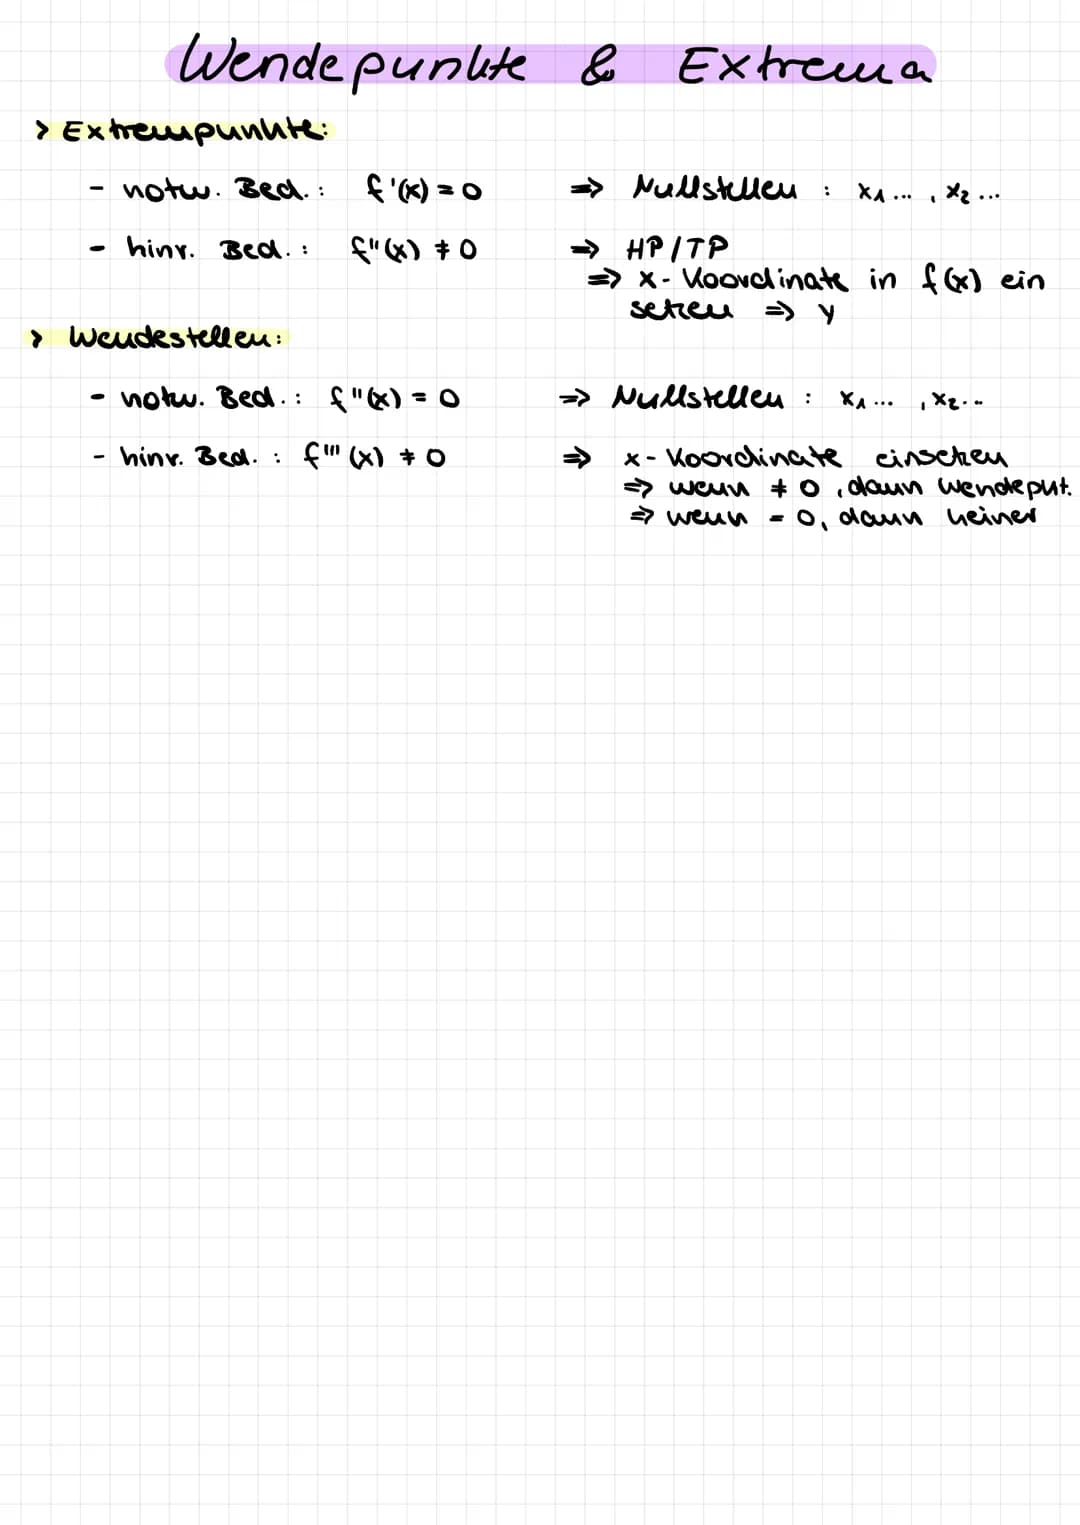 Wendepunkte & Extrema
> Extrempunkte:
- notw. Bed.: f'(x) = 0 => Nullstellen : x₁ ... , x₂ ...
- hinr. Bed.: f''(x) ≠ 0 => HP/TP
=> x-Koordinate in f(x) ein
setzen => y
> Wendestellen:
- notw. Bed.: f''(x) = 0 => Nullstellen : x₁ ... , x₂...
- hinr. Bed. : f'''(x) ≠ 0 => x-Koordinate einsetzen
=> wenn ≠ 0, dann Wendepkt.
=> wenn = 0, dann keiner